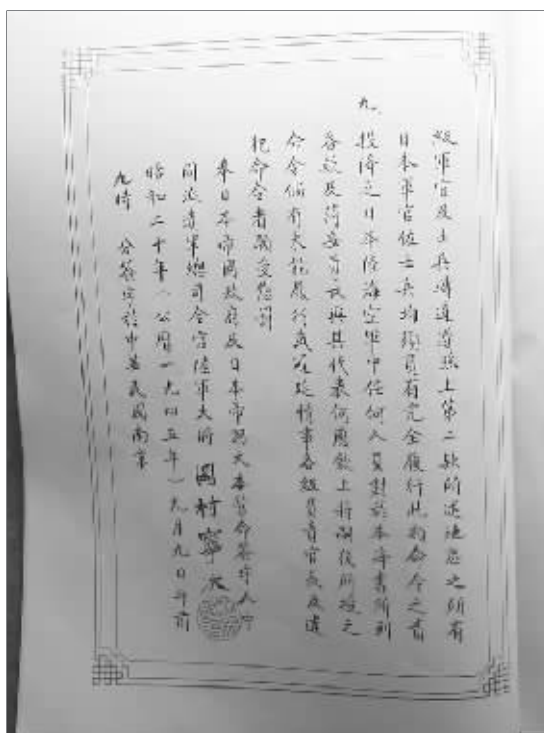 級軍官及士兵傳達遵照上第二款所述地區之所有
日本軍官佐士兵均須負有完全履行此類命令之責
九、投降之日本陸海空軍中任何人員對於本降書所列
各款及蔣委員長與其代表何應欽上將嗣後所授之
命令倘有未能履行或遲延情事各級負責官長及違
犯命令者願受懲罰
奉日本帝國政府及日本帝國大本營命簽字人中
國派遣軍總司令官陸軍大將 岡村寧次
昭和二十年(公曆一九四五年)九月九日午前
九時 分簽字於中華民國南京